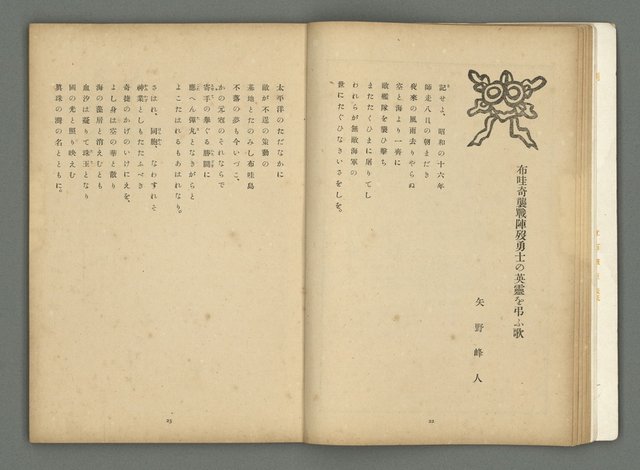 布哇奇襲戰陣歿勇士の英靈を弔ふ歌
矢野峰人
記せよ、昭和の十六年
師走八日の朝まだき
夜來の風雨去りやらぬ
空と海より一齊に
敵艦隊を襲ひ擊ち
またたくひまに屠りてし
われらが無敵海軍の
世にたぐひなきいさをしを。
22
太平洋のただなかに
敵が不逞の策動の
基地とたのみし布哇島
不落の夢も今いづこ、
かの元寇のそれならで
寄手の擧ぐる勝鬨に
應へん彈丸となきがらと
よこたはれるもあはれなり。
さはれ、同胞、なわすれそ
神業としもたたふべき
奇捷のかげのいけにえを、
よし身は空の華と散り
海の藻屑と消えむとも
血汐は凝りて珠玉となり
國の光と照り映えむ
眞珠の灣の名とともに。
23